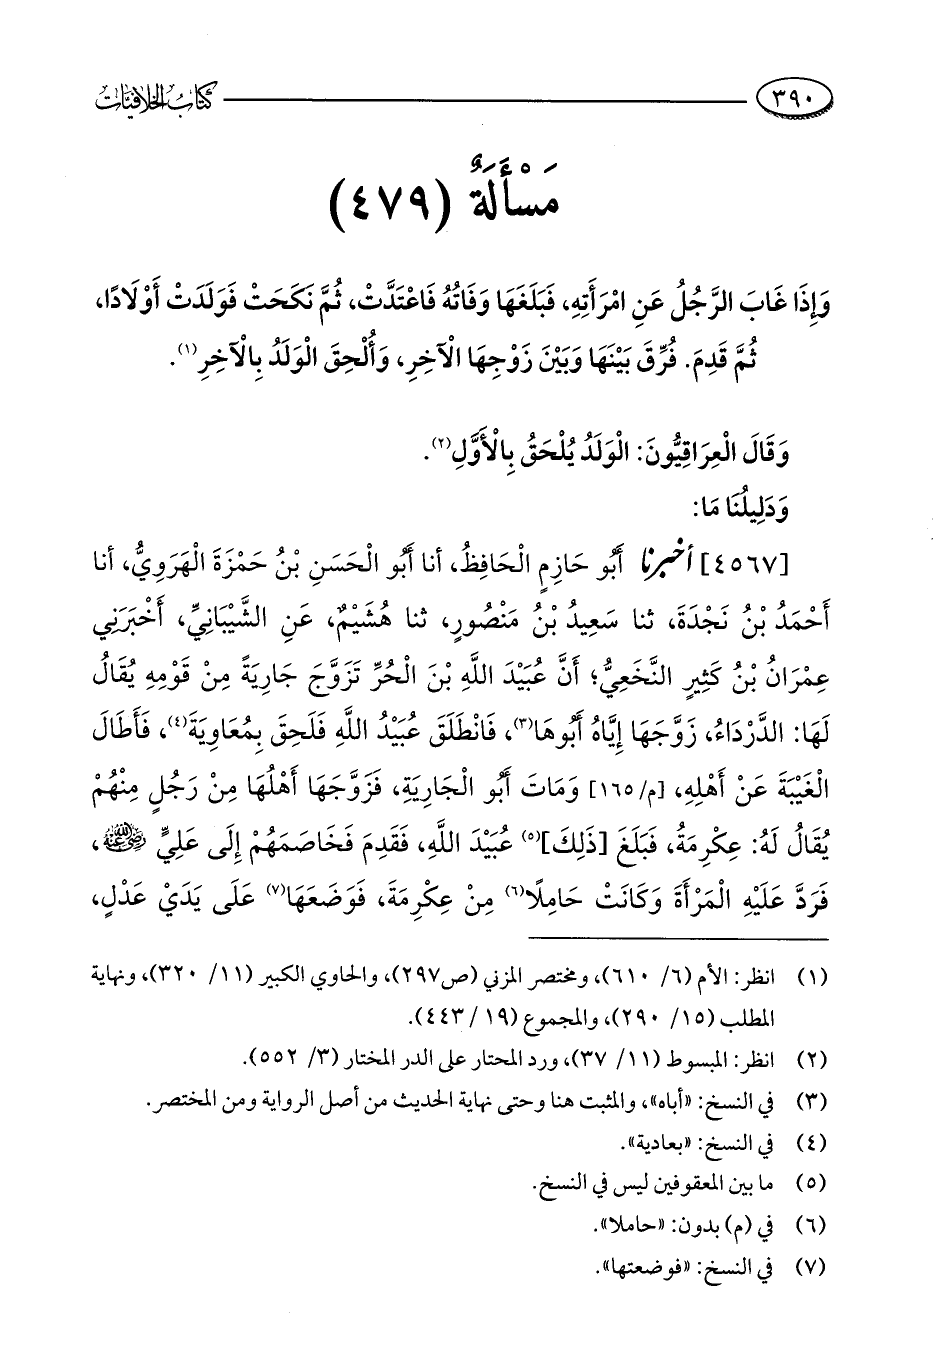 ٣٩٠ كتاب الخلافيات
مَسْأَلَةٌ (٤٧٩)
وَإِذَا غَابَ الرَّجُلُ عَنِ امْرَأَتِهِ، فَبَلَغَهَا وَفَاتُهُ فَاعْتَدَّتْ، ثُمَّ نَكَحَتْ فَوَلَدَتْ أَوْلَادًا،
ثُمَّ قَدِمَ. فُرِّقَ بَيْنَهَا وَبَيْنَ زَوْجِهَا الْآخِرِ، وَأُلْحِقَ الْوَلَدُ بِالْآخِرِ(١).
وَقَالَ الْعِرَاقِيُّونَ: الْوَلَدُ يُلْحَقُ بِالْأَوَّلِ(٢).
وَدَلِيلُنَا مَا:
[٤٥٦٧] أخبرنا أَبُو حَازِمٍ الْحَافِظُ، أنا أَبُو الْحَسَنِ بْنُ حَمْزَةَ الْهَرَوِيُّ، أنا
أَحْمَدُ بْنُ نَجْدَةَ، ثنا سَعِيدُ بْنُ مَنْصُورٍ، ثنا هُشَيْمٌ، عَنِ الشَّيْبَانِيِّ، أَخْبَرَنِي
عِمْرَانُ بْنُ كَثِيرٍ النَّخَعِيُّ؛ أَنَّ عُبَيْدَ اللَّهِ بْنَ الْحُرِّ تَزَوَّجَ جَارِيَةً مِنْ قَوْمِهِ يُقَالُ
لَهَا: الدَّرْدَاءُ، زَوَّجَهَا إِيَّاهُ أَبُوهَا(٣)، فَانْطَلَقَ عُبَيْدُ اللَّهِ فَلَحِقَ بِمُعَاوِيَةَ(٤)، فَأَطَالَ
الْغَيْبَةَ عَنْ أَهْلِهِ، [م/١٦٥] وَمَاتَ أَبُو الْجَارِيَةِ، فَزَوَّجَهَا أَهْلُهَا مِنْ رَجُلٍ مِنْهُمْ
يُقَالُ لَهُ: عِكْرِمَةُ، فَبَلَغَ [ذَلِكَ](٥) عُبَيْدَ اللَّهِ، فَقَدِمَ فَخَاصَمَهُمْ إِلَى عَلِيٍّ رضي الله عنه،
فَرَدَّ عَلَيْهِ الْمَرْأَةَ وَكَانَتْ حَامِلًا(٦) مِنْ عِكْرِمَةَ، فَوَضَعَهَا(٧) عَلَى يَدَيْ عَدْلٍ،
(١) انظر: الأم (٦/ ٦١٠)، ومختصر المزني (ص٢٩٧)، والحاوي الكبير (١١/ ٣٢٠)، ونهاية
المطلب (١٥/ ٢٩٠)، والمجموع (١٩/ ٤٤٣).
(٢) انظر: المبسوط (١١/ ٣٧)، ورد المحتار على الدر المختار (٣/ ٥٥٢).
(٣) في النسخ: «أباه»، والمثبت هنا وحتى نهاية الحديث من أصل الرواية ومن المختصر.
(٤) في النسخ: «بعادية».
(٥) ما بين المعقوفين ليس في النسخ.
(٦) في (م) بدون: «حاملا».
(٧) في النسخ: «فوضعتها».